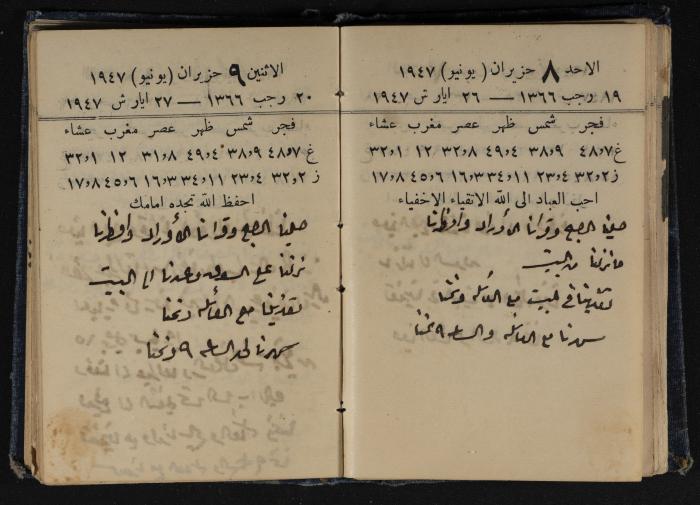 الاحد ٨ حزيران (يونيو) ١٩٤٧
١٩ رجب ١٣٦٦ — ٢٦ ايار ش ١٩٤٧
فجر شمس ظهر عصر مغرب عشاء
غ ٧٫٤٨ ٩٫٣٨ ٤٫٤٩ ٨٫٣٢ ١٢ ١٫٣٢
ز ٢٫٣٢ ٤٫٢٣ ١١٫٣٤ ٣٫١٦ ٦٫٤٥ ٨٫١٧
احب العباد الى الله الاتقياء الاخفياء
صلينا الصبح وقرأنا الأوراد وافطرنا
ما نزلنا من البيت
تغدينا في البيت مع العائلة ونمنا
سهرنا مع العائلة والساعة ٩ نمنا
الاثنين ٩ حزيران (يونيو) ١٩٤٧
٢٠ رجب ١٣٦٦ — ٢٧ ايار ش ١٩٤٧
فجر شمس ظهر عصر مغرب عشاء
غ ٧٫٤٨ ٩٫٣٨ ٤٫٤٩ ٨٫٣١ ١٢ ١٫٣٢
ز ٢٫٣٢ ٤٫٢٣ ١١٫٣٤ ٣٫١٦ ٦٫٤٥ ٨٫١٧
احفظ الله تجده امامك
صلينا الصبح وقرأنا الأوراد وافطرنا
نزلنا على السوق وعدنا الى البيت
تغدينا مع العائلة ونمنا
سهرنا لحد الساعة ٩ ونمنا